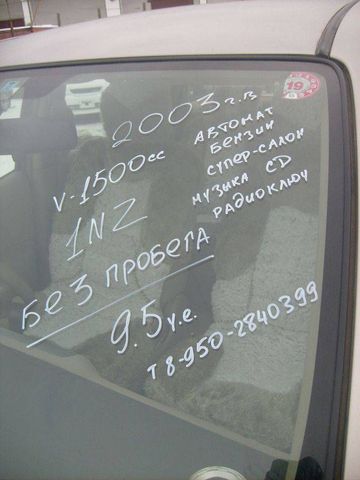 2003 г.в
V-1500cc
1NZ
БЕЗ ПРОБЕГА
9.5 у.е.
АВТОМАТ
БЕНЗИН
СУПЕР-САЛОН
МУЗЫКА CD
РАДИОКЛЮЧ
Т 8-950-2840399
19